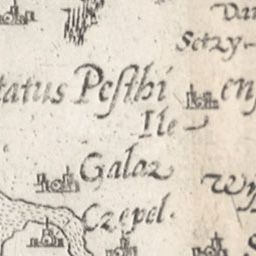 Setzy-
tatus Pesthi
Ile-
Galaz
Czepel.